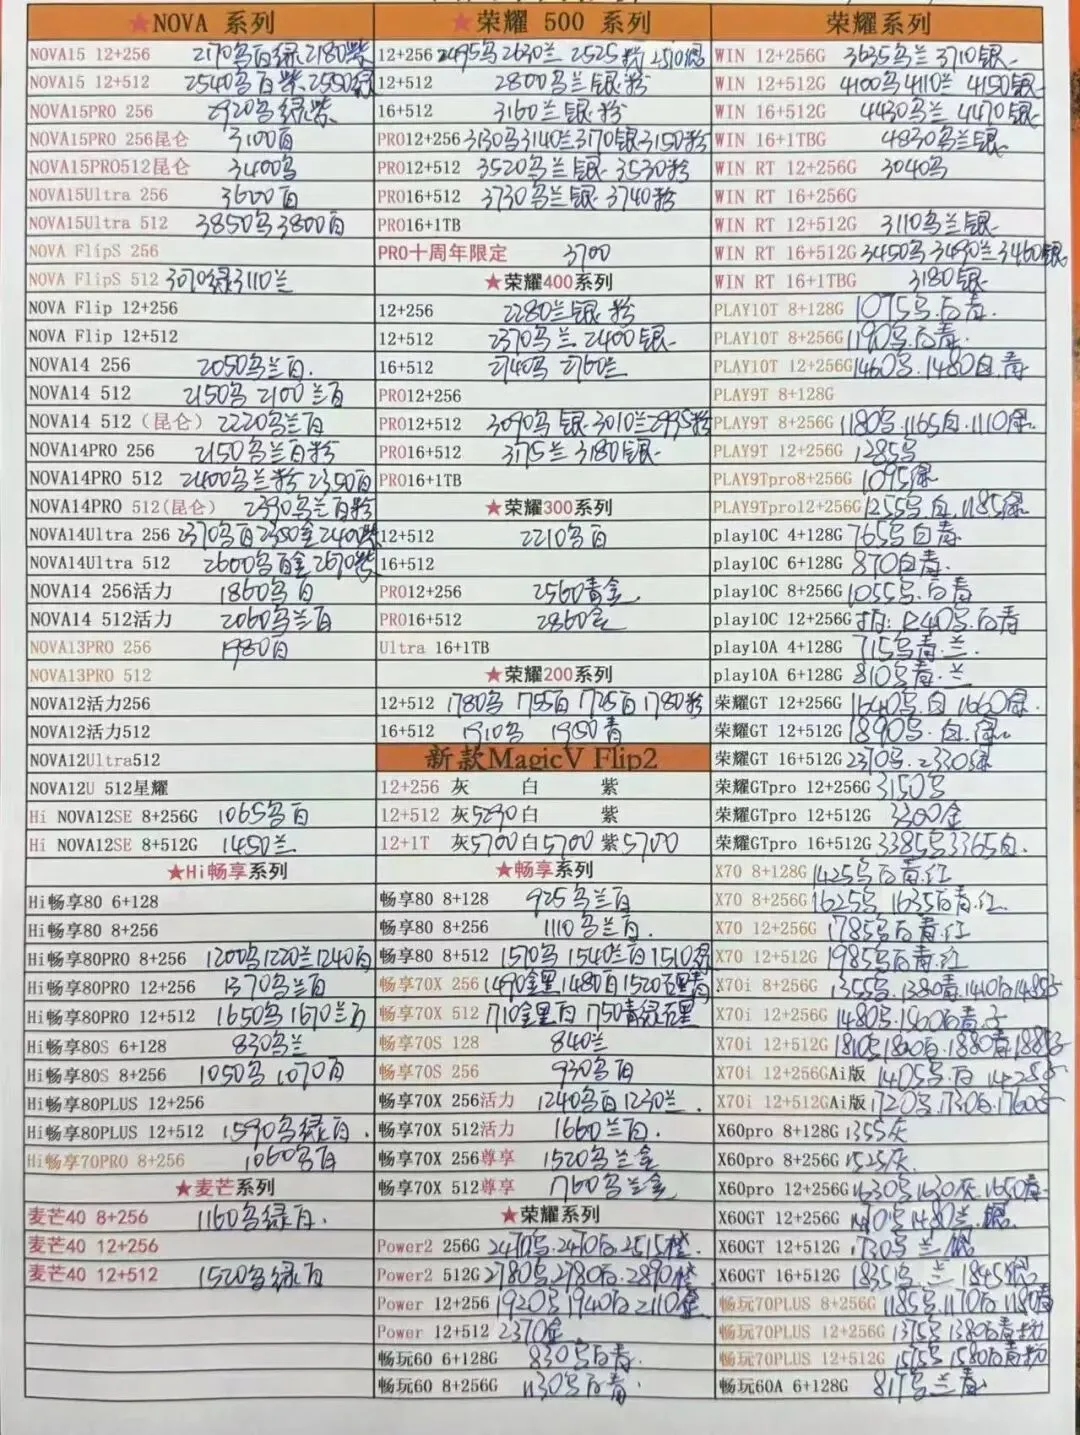 ★NOVA 系列
NOVA15 12+256 2170乌白绿2180紫
NOVA15 12+512 2540乌白紫2550绿
NOVA15PRO 256 2920乌绿紫
NOVA15PRO 256昆仑 3100百
NOVA15PRO512昆仑 3400乌
NOVA15Ultra 256 3600百
NOVA15Ultra 512 3850乌3800百
NOVA FlipS 256
NOVA FlipS 512 3070绿3110兰
NOVA Flip 12+256
NOVA Flip 12+512
NOVA14 256 2050乌兰百.
NOVA14 512 2150乌 2100兰百
NOVA14 512 (昆仑) 2220乌兰百
NOVA14PRO 256 2150乌兰百粉
NOVA14PRO 512 2400乌兰粉 2350百
NOVA14PRO 512(昆仑) 2390乌兰百粉
NOVA14Ultra 256 2370乌百2350金2400紫
NOVA14Ultra 512 2600乌百金2670紫
NOVA14 256活力 1860乌百
NOVA14 512活力 2060乌兰百
NOVA13PRO 256 1980百
NOVA13PRO 512
NOVA12活力256
NOVA12活力512
NOVA12Ultra512
NOVA12U 512星耀
Hi NOVA12SE 8+256G 1065乌百
Hi NOVA12SE 8+512G 1450兰
★Hi畅享系列
Hi畅享80 6+128
Hi畅享80 8+256
Hi畅享80PRO 8+256 1200乌1220兰1240百
Hi畅享80PRO 12+256 1370乌兰百
Hi畅享80PRO 12+512 1650乌1670兰百
Hi畅享80S 6+128 830乌兰
Hi畅享80S 8+256 1050乌 1070百
Hi畅享80PLUS 12+256
Hi畅享80PLUS 12+512 1590乌绿百.
Hi畅享70PRO 8+256 1060乌百
★麦芒系列
麦芒40 8+256 1160乌绿百.
麦芒40 12+256
麦芒40 12+512 1520乌绿百
★荣耀 500 系列
12+256 2495乌2630兰2525粉2510银
12+512 2800乌兰银粉
16+512 3160兰银粉
PRO12+256 3130乌3140兰3170银3150粉
PRO12+512 3520乌兰银 3530粉
PRO16+512 3730乌兰银 3740粉
PRO16+1TB
PRO十周年限定 3700
★荣耀400系列
12+256 2280兰银粉
12+512 2370乌兰 2400银
16+512 2740乌 2760兰
PRO12+256
PRO12+512 3090乌银 3010兰2995粉
PRO16+512 3175兰 3180银
PRO16+1TB
★荣耀300系列
12+512 2210乌百
16+512
PRO12+256 2560青金
PRO16+512 2860金
Ultra 16+1TB
★荣耀200系列
12+512 1780乌 1755百 1780粉
16+512 1910乌 1950青
新款MagicV Flip2
12+256 灰 白 紫
12+512 灰5290白 紫
12+1T 灰5700白5700紫5700
★畅享系列
畅享80 8+128 925乌兰百
畅享80 8+256 1110乌兰百.
畅享80 8+512 1570乌 1540兰百1510绿
畅享70X 256 1490金黑1480百1520
畅享70X 512 1710金黑百 1750青绿
畅享70S 128 840兰
畅享70S 256 930乌百
畅享70X 256活力 1240乌百1230兰.
畅享70X 512活力 1660兰百.
畅享70X 256尊享 1520乌兰金
畅享70X 512尊享 1760乌兰金
★荣耀系列
Power2 256G 2470乌.2470百.2515橙.
Power2 512G 2780乌.2780百.2890橙
Power 12+256 1920乌1940百2110金
Power 12+512 2370金
畅玩60 6+128G 830乌百青.
畅玩60 8+256G 1130乌百青.
荣耀系列
WIN 12+256G 3635乌兰3710银
WIN 12+512G 4100乌4110兰 4150银
WIN 16+512G 4430乌兰 4470银
WIN 16+1TBG 4830乌兰银
WIN RT 12+256G 3040乌
WIN RT 16+256G
WIN RT 12+512G 3110乌兰银
WIN RT 16+512G 3450乌3490兰3460银
WIN RT 16+1TBG 3180银
PLAY10T 8+128G 1075乌.百青.
PLAY10T 8+256G 1190乌.百青.
PLAY10T 12+256G 1460乌.1480白.青
PLAY9T 8+128G
PLAY9T 8+256G 1180乌.1165白.1110绿.
PLAY9T 12+256G 1285乌
PLAY9Tpro8+256G 1095绿
PLAY9Tpro12+256G 1255乌.白.1185绿
play10C 4+128G 765乌白青.
play10C 6+128G 870白青.
play10C 8+256G 1055乌.百青
play10C 12+256G 1240乌.百青
play10A 4+128G 715乌青.兰.
play10A 6+128G 810乌青.兰
荣耀GT 12+256G 1640乌.白 1660绿.
荣耀GT 12+512G 1890乌.白.绿.
荣耀GT 16+512G 2310乌.2330绿
荣耀GTpro 12+256G 3150乌
荣耀GTpro 12+512G 3300金
荣耀GTpro 16+512G 3385乌3365白.
X70 8+128G 1425乌百青.红
X70 8+256G 1625乌 1635百青.红.
X70 12+256G 1785乌百青.红
X70 12+512G 1985乌百青.红
X70i 8+256G 1355乌.1380青.1410百1485
X70i 12+256G 1480乌.1500百青.
X70i 12+512G 1810乌1800百.1880青1885
X70i 12+256GAi版 1405乌.百 1425
X70i 12+512GAi版 1720乌.1730百.1760
X60pro 8+128G 1355灰
X60pro 8+256G 1525灰.
X60pro 12+256G 1630乌1630灰.1650青.
X60GT 12+256G 1470乌1480兰.银.
X60GT 12+512G 1730乌 兰 银
X60GT 16+512G 1835乌.兰 1845银.
畅玩70PLUS 8+256G 1185乌.1170百1180青
畅玩70PLUS 12+256G 1375乌1380百青粉
畅玩70PLUS 12+512G 1575乌.1580百青粉
畅玩60A 6+128G 817乌兰青.